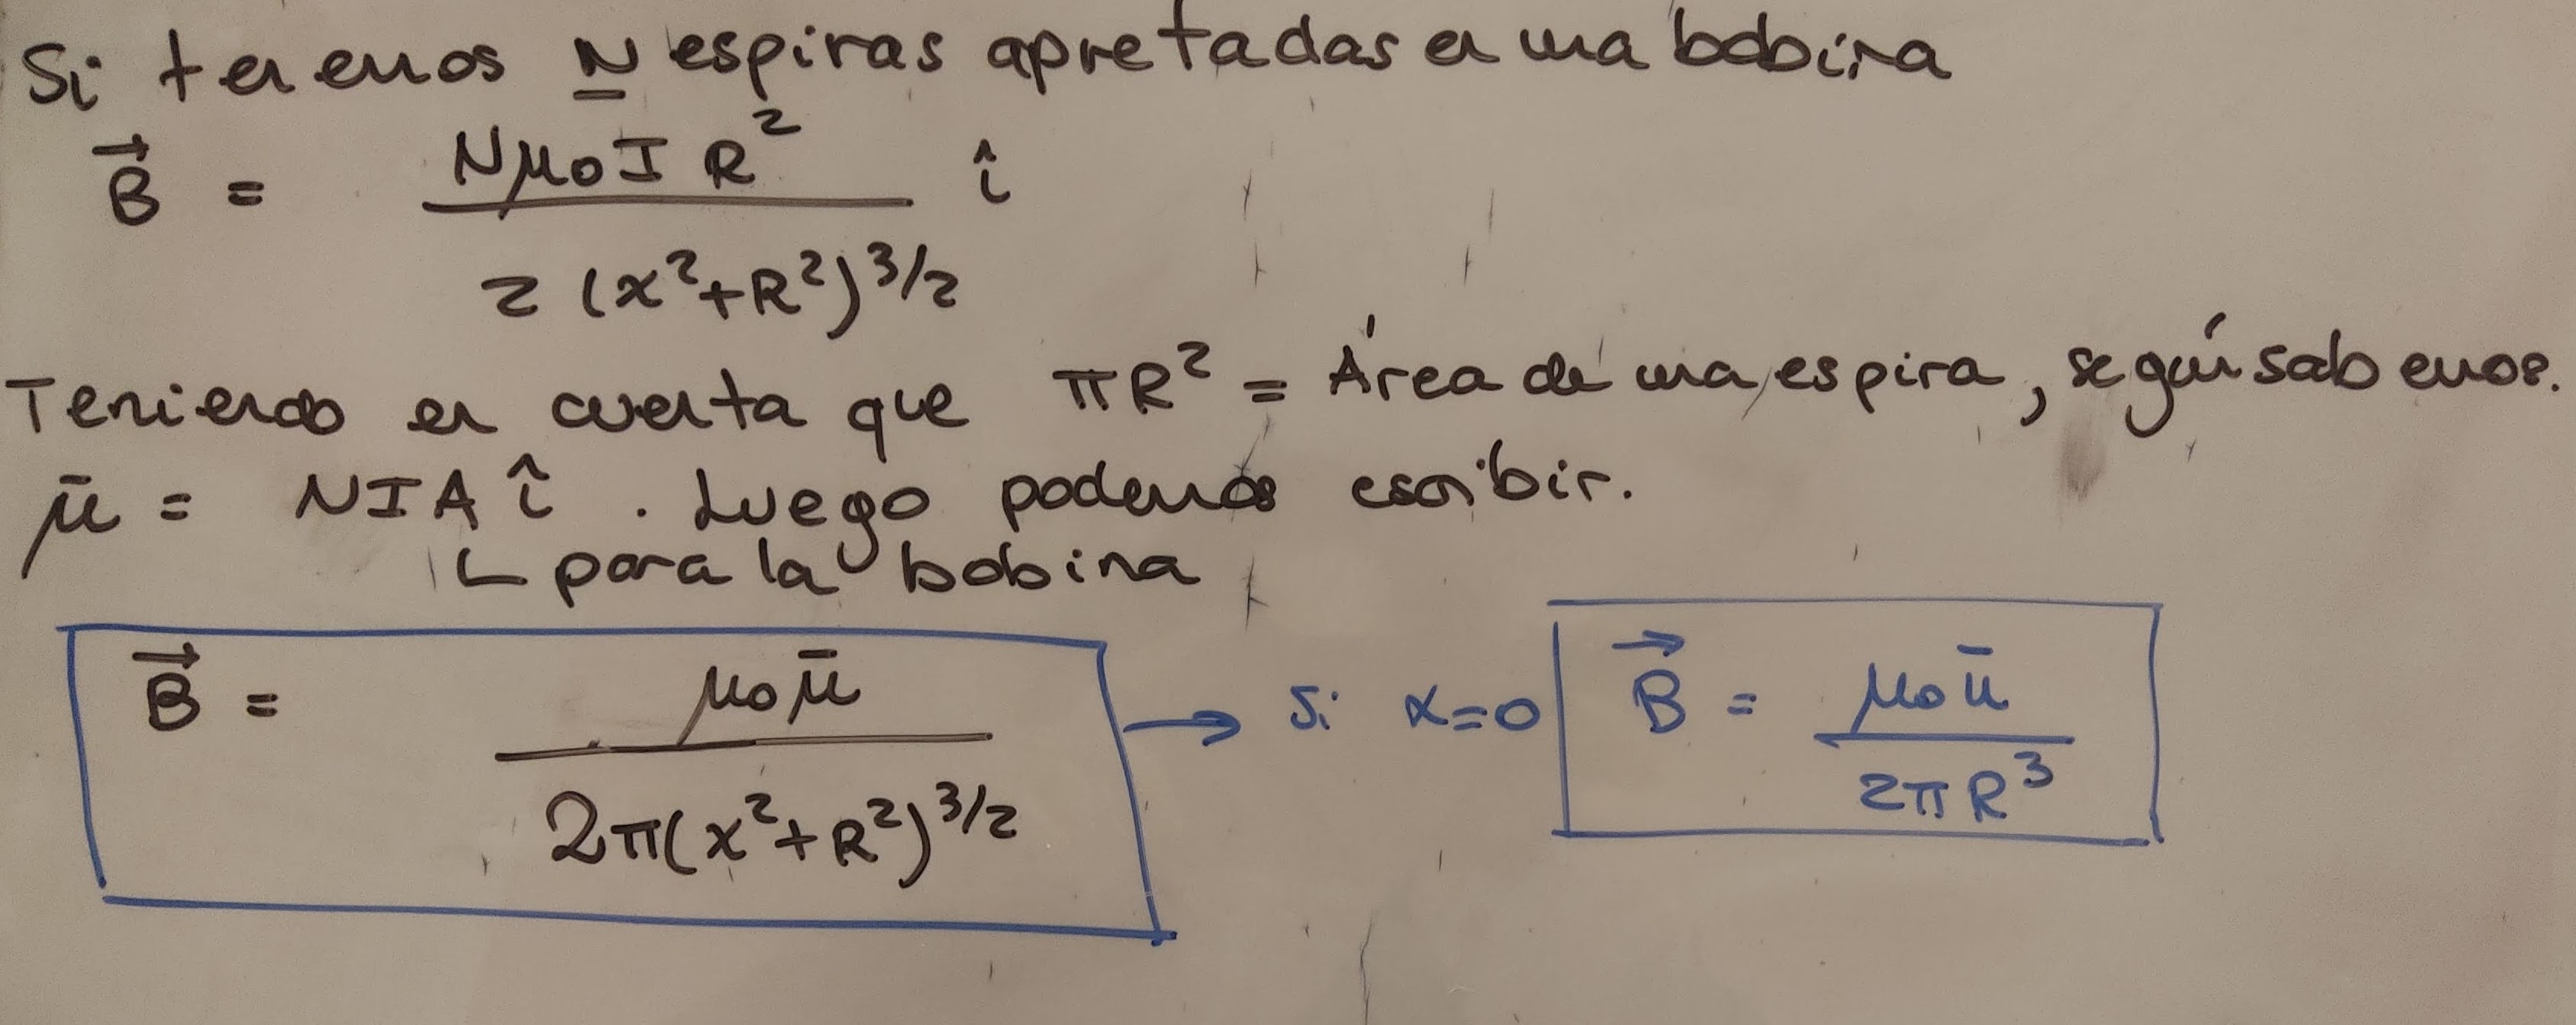 Si tenemos N espiras apretadas en una bobina
B⃗ = NμoI R² / 2 (x²+R²)^3/2 î
Teniendo en cuenta que πR² = Área de una espira, según sabemos.
μ̄ = NIA î . Luego podemos escribir.
para la bobina
B⃗ = μo μ̄ / 2π(x²+R²)^3/2 → si x=0 B⃗ = μo μ̄ / 2πR³